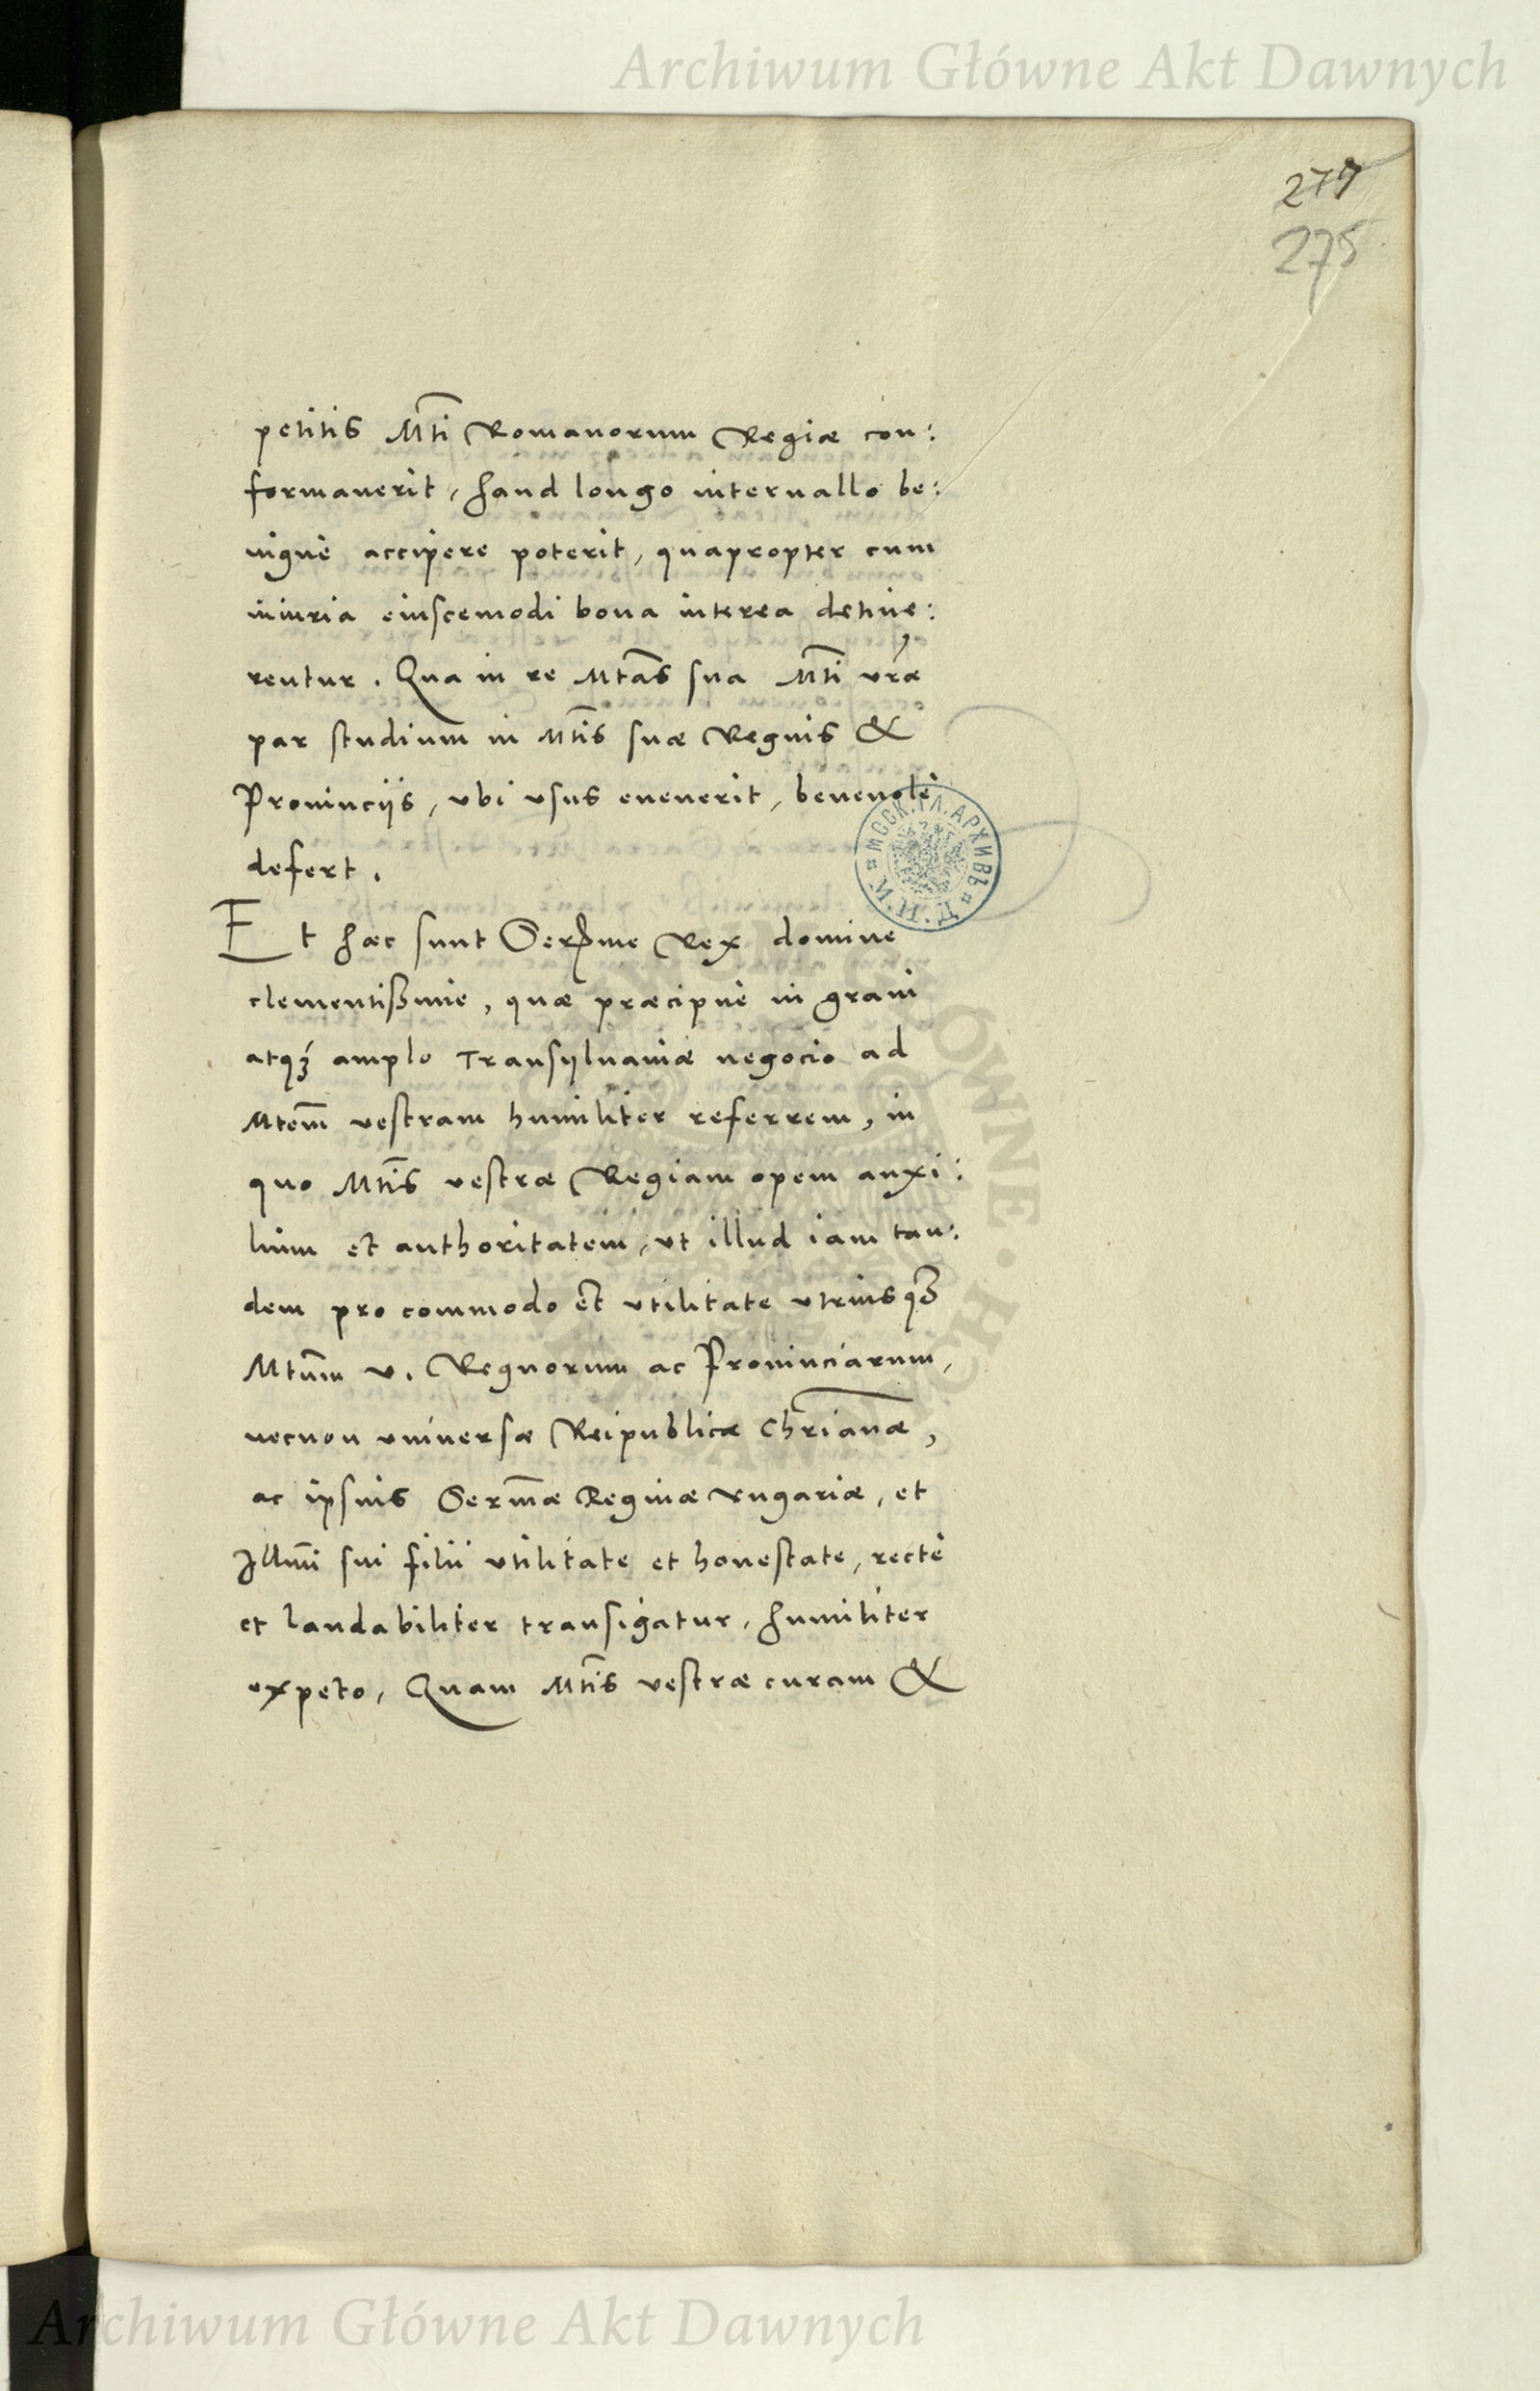 Archiwum Główne Akt Dawnych
277
275
petitis Mti Romanorum Regiæ con:
formauerit, haud longo interuallo be:
nignè accipere poterit, quapropter cum
iniuria eiuscemodi bona interea detine:
rentur. Qua in re Mtas sua Mti vræ
par studium in Mtis suæ Regnis &
Prouinciis, vbi vsus euenerit, beneuolè
defert.
Et hæc sunt Serme Rex domine
clementissime, quæ præcipuè in graui
atqȝ amplo Transyluaniæ negocio ad
Mtem vestram humiliter referrem, in
quo Mtis vestræ Regiam opem auxi:
lium et authoritatem, vt illud iam tan:
dem pro commodo et vtilitate vtriusqȝ
Mtum v. Regnorum ac Prouinciarum,
necnon vniuersæ Reipublicæ Chrianæ,
ac ipsius Sermæ Reginæ Vngariæ, et
Illmi sui filii vtilitate et honestate, rectè
et laudabiliter transigatur, humiliter
expeto, Quam Mtis vestræ curam &
МОСК. ГЛ. АРХИВЪ М. И. Д.
Archiwum Główne Akt Dawnych